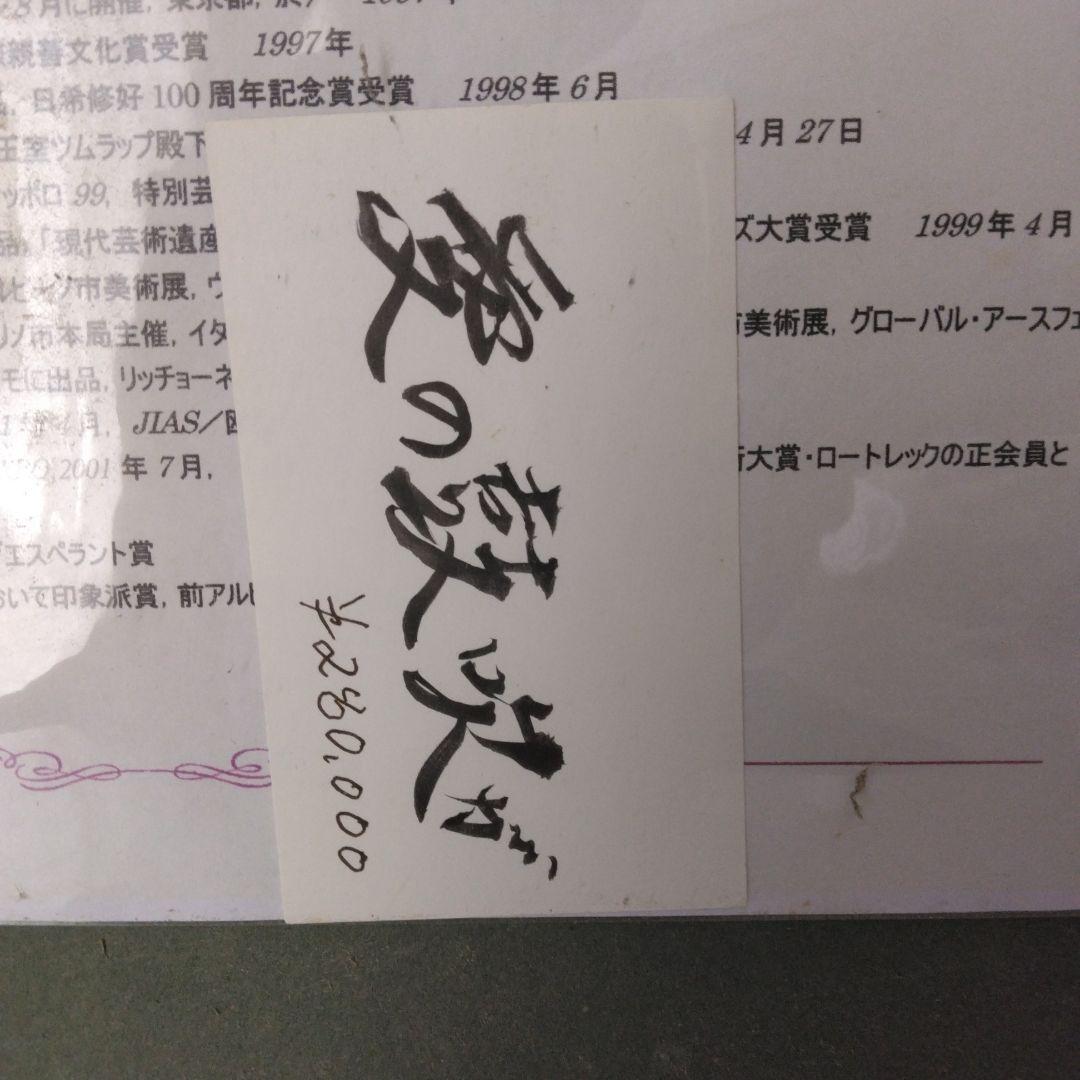 8月に開催, 東京都,
親善文化賞受賞 1997年
日希修好100周年記念賞受賞 1998年6月
王室ツムラップ殿下 4月27日
ッポロ99, 特別芸
品,「現代芸術遺産 ズ大賞受賞 1999年4月
市美術展, 市美術展, グローバル・アースフェ
市本局主催, イタ
モに出品, リッチョーネ
月, JIAS/欧
2001年7月, 大賞・ロートレックの正会員と
エスペラント賞
おいて印象派賞, 前アルビ
愛の鼓吹
¥280.000